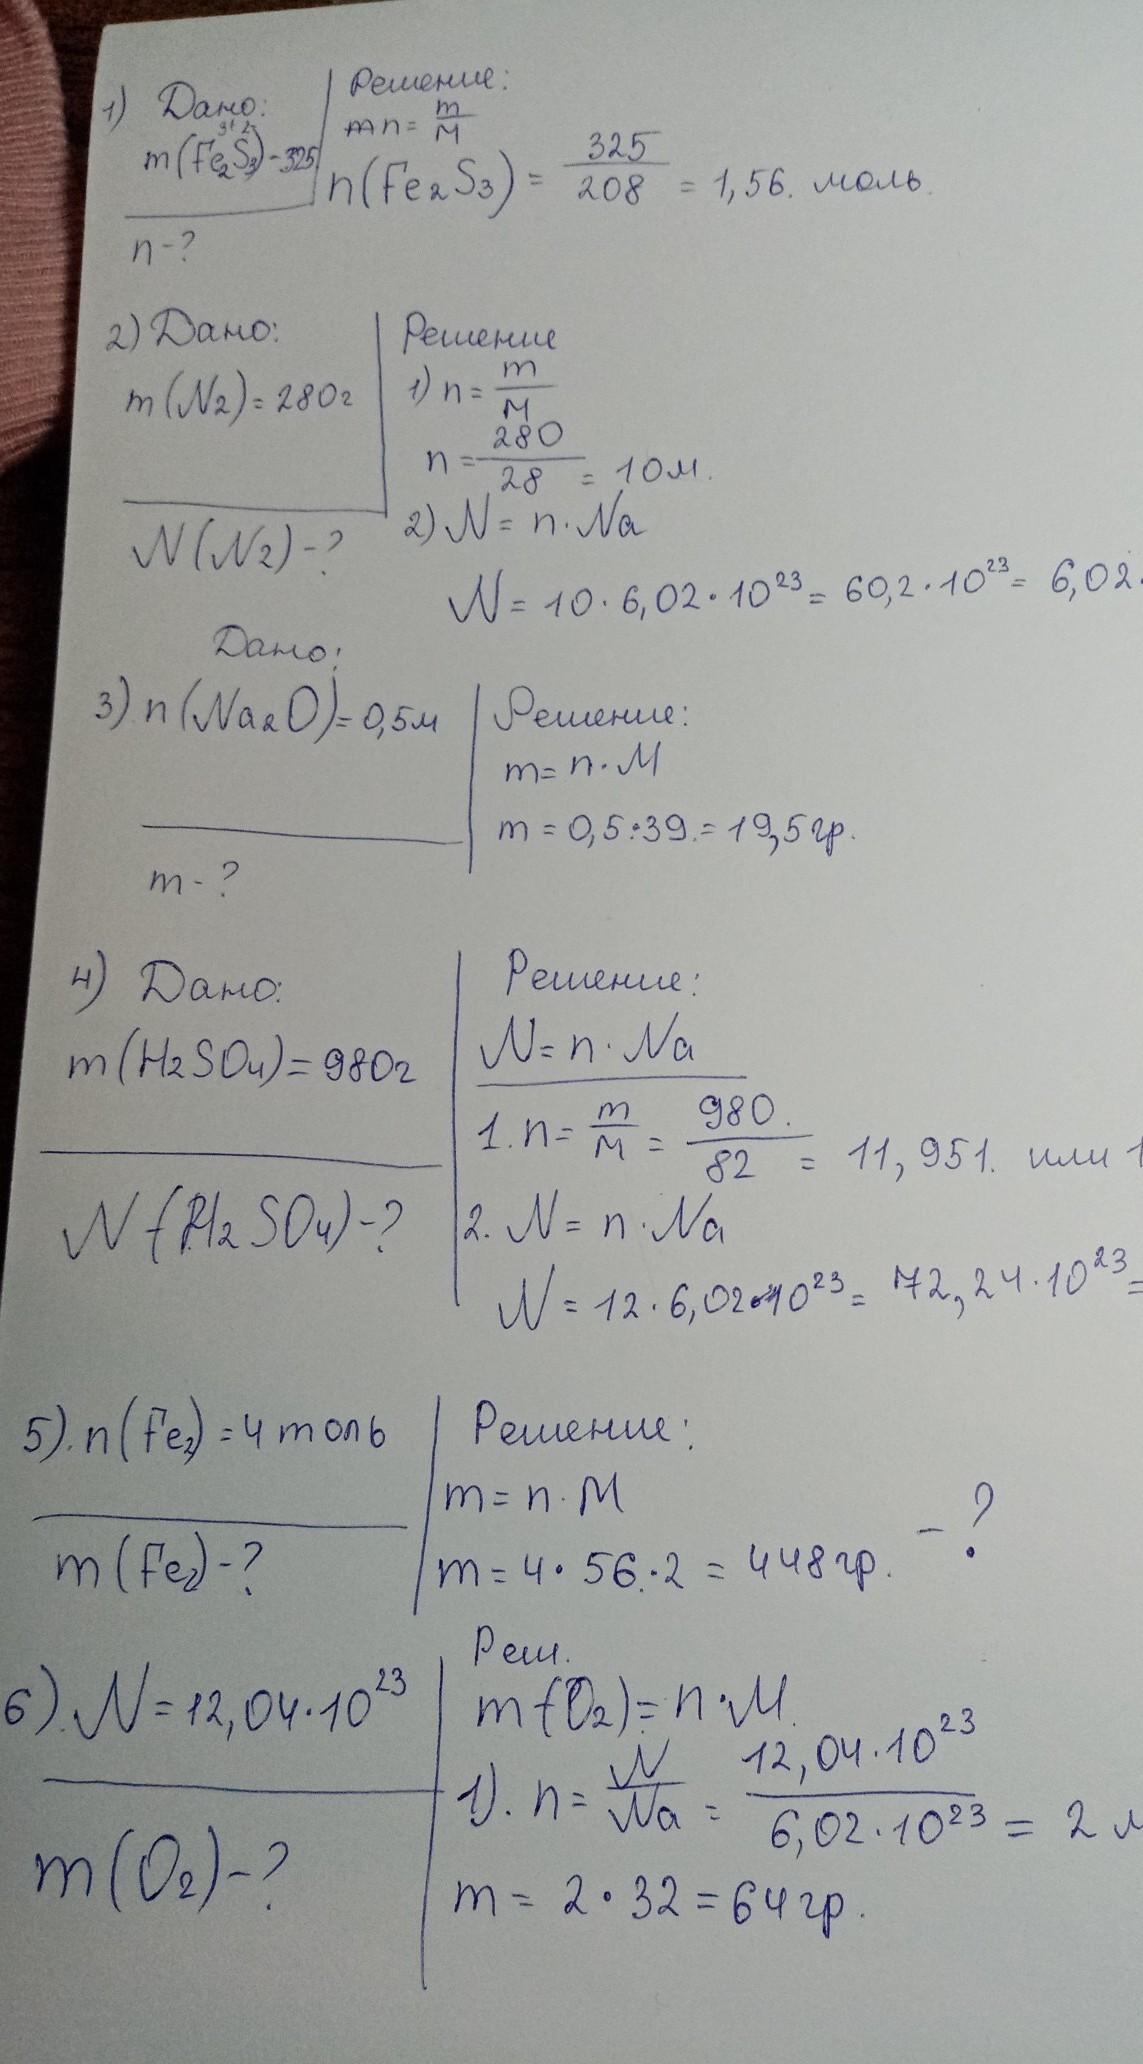 1) Дано:
3+ 2-
m(Fe2S3)-325
n-?
Решение:
n= m/M
n(Fe2S3) = 325/208 = 1,56. моль.
2) Дано:
m(N2)=280г
N(N2)-?
Решение
1) n= m/M
n= 280/28 = 10м.
2) N= n·Na
N= 10·6,02·10²³= 60,2·10²³= 6,02·
Дано:
3) n(Na2O)=0,5м
m-?
Решение:
m= n·M
m=0,5·39.=19,5гр.
4) Дано:
m(H2SO4)=980г
N(H2SO4)-?
Решение:
N= n·Na
1. n= m/M = 980./82 = 11,951. или 1
2. N= n·Na
N=12·6,02·10²³= 72,24·10²³=
5). n(Fe2)=4 mоль
m(Fe2)-?
Решение:
m= n·M
m=4·56.·2 = 448гр. -?
6). N=12,04·10²³
m(O2)-?
Реш.
m(O2)= n·M.
1). n= N/Na = 12,04·10²³/6,02·10²³ = 2 м
m= 2·32=64гр.